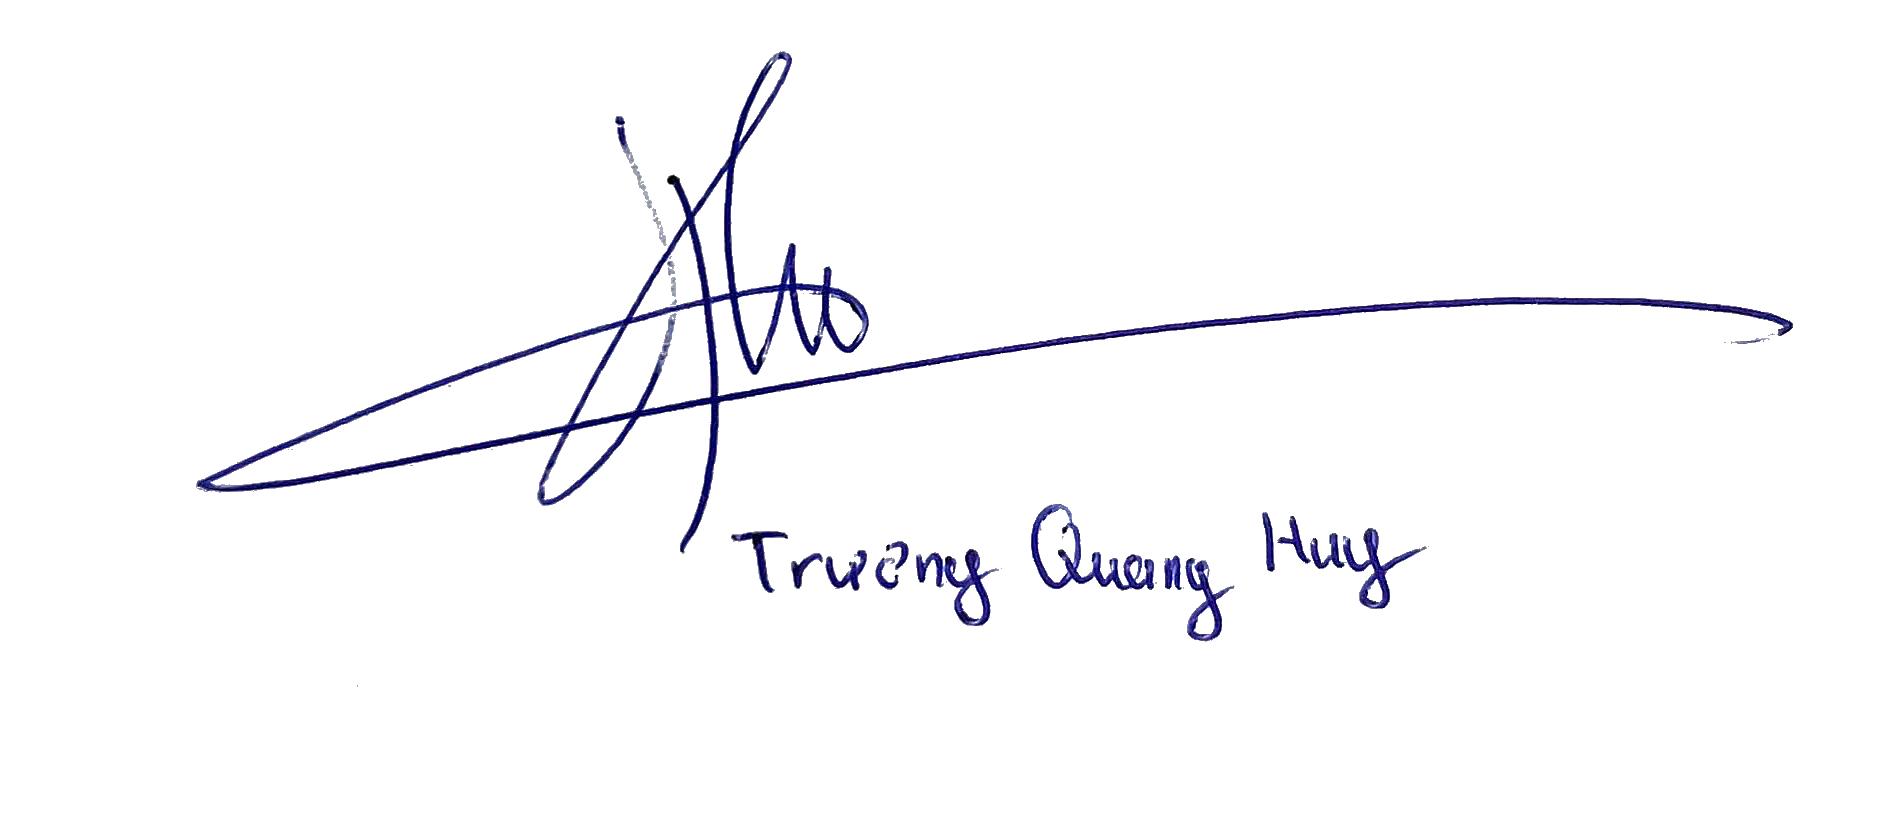 Trương Quang Huy